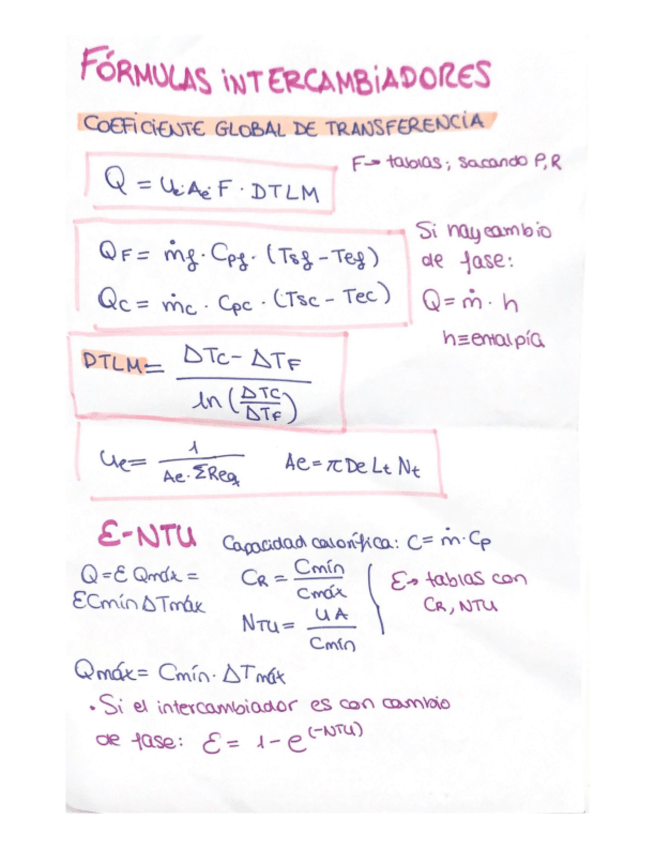 FÓRMULAS INTERCAMBIADORES
COEFICIENTE GLOBAL DE TRANSFERENCIA
Q = Ue·Ae·F · DTLM
F→ tablas; sacando P,R
QF = ṁf · Cpf · (Tsf - Tef)
QC = ṁc · Cpc · (Tsc - Tec)
Si hay cambio
de fase:
Q = ṁ · h
h≡entalpía
DTLM = (ΔTC - ΔTF) / ln(ΔTC/ΔTF)
Ue = 1 / (Ae·ΣReq)   Ae = π De Lt Nt
Ɛ-NTU   Capacidad calorífica: C = ṁ·Cp
Q = Ɛ Qmáx =
ƐCmín ΔTmáx
CR = Cmín / Cmáx
NTU = UA / Cmín
Ɛ→ tablas con
CR, NTU
Qmáx = Cmín · ΔTmáx
· Si el intercambiador es con cambio
de fase: Ɛ = 1 - e^(-NTU)